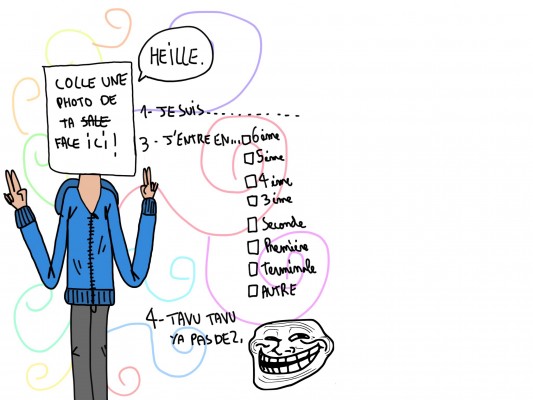 HEILLE.
COLLE UNE
PHOTO DE
TA SALE
FACE ICI!
1-JE SUIS..................
3-J'ENTRE EN...
6ème
5ème
4ième
3ième
Seconde
Première
Terminale
AUTRE
4-TAVU TAVU
YA PAS DE2.